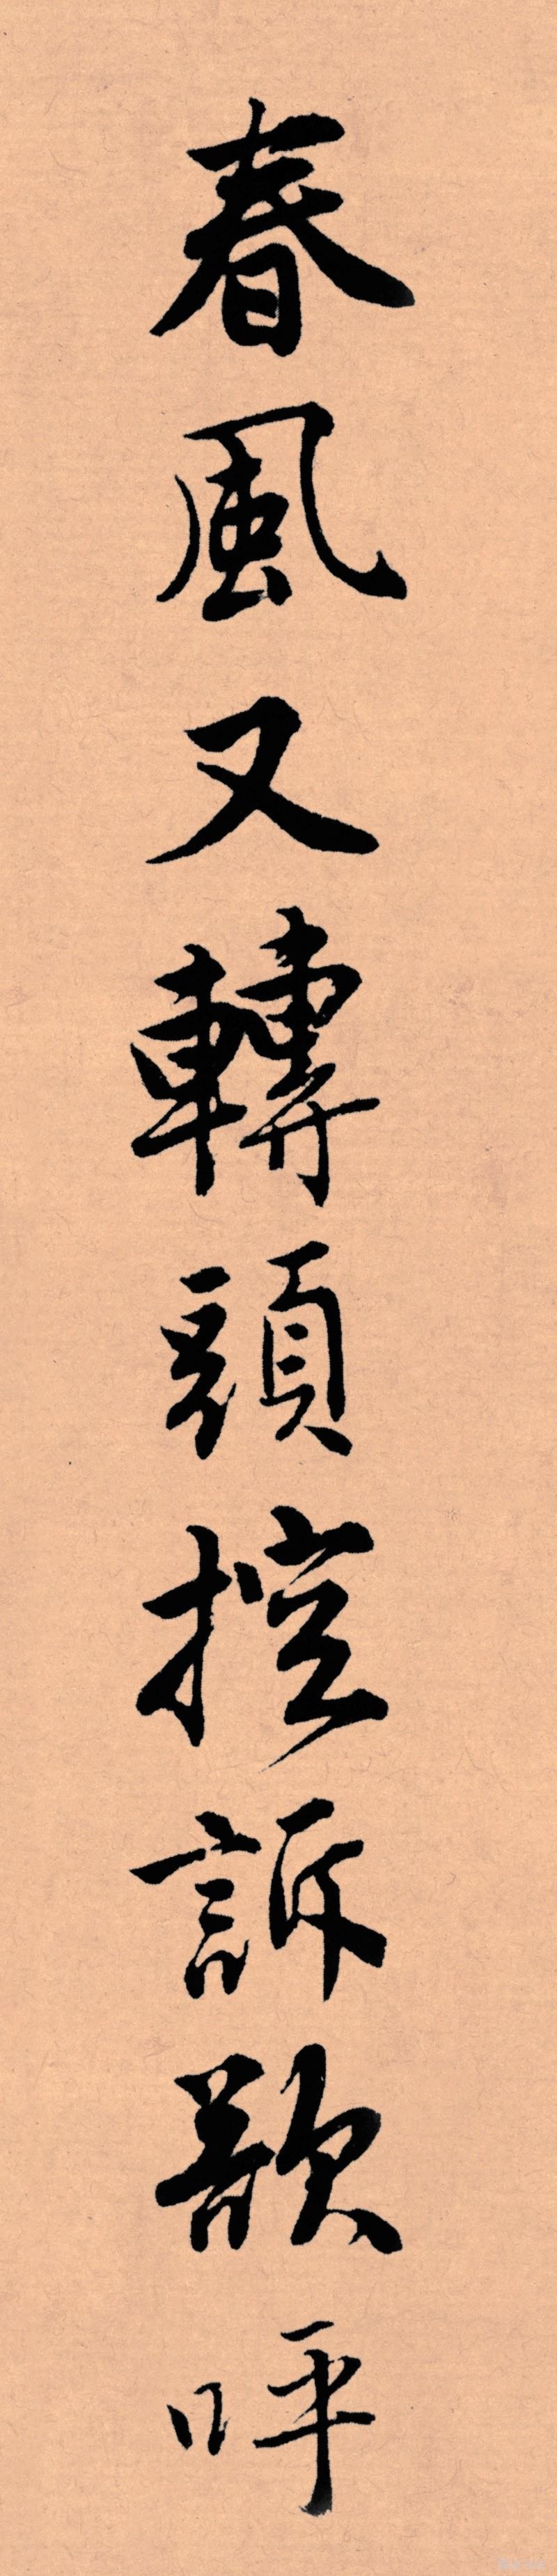 春風又轉頭控訴歡呼